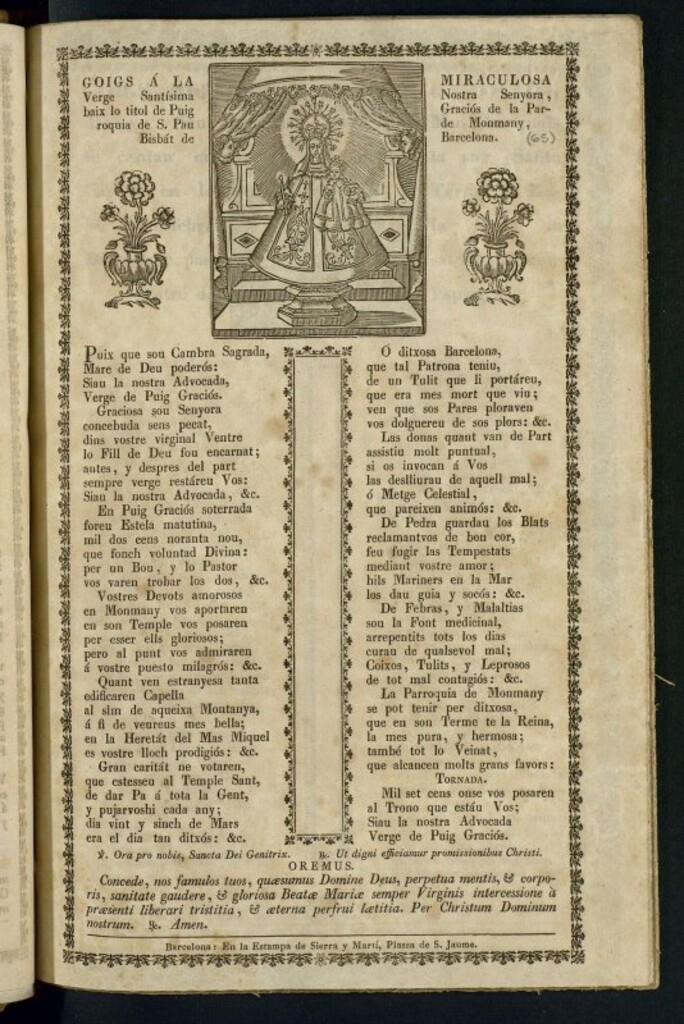 GOIGS Á LA MIRACULOSA
Verge Santísima Nostra Senyora,
baix lo titol de Puig Graciós de la Par-
roquia de S. Pau de Monmany,
Bisbát de Barcelona. (65)
Puix que sou Cambra Sagrada,
Mare de Deu poderós:
Siau la nostra Advocada,
Verge de Puig Graciós.
Graciosa sou Senyora
concebuda sens pecat,
dins vostre virginal Ventre
lo Fill de Deu fou encarnat;
antes, y despres del part
sempre verge restáreu Vos:
Siau la nostra Advocada, &c.
En Puig Graciós soterrada
foreu Estela matutina,
mil dos cens noranta nou,
que fonch voluntad Divina:
per un Bou, y lo Pastor
vos varen trobar los dos, &c.
Vostres Devots amorosos
en Monmany vos aportaren
en son Temple vos posaren
per esser ells gloriosos;
pero al punt vos admiraren
á vostre puesto milagrós: &c.
Quant ven estranyesa tanta
edificaren Capella
al sim de aqueixa Montanya,
á fi de veureus mes bella;
en la Heretát del Mas Miquel
es vostre lloch prodigiós: &c.
Gran caritát ne votaren,
que estesseu al Temple Sant,
de dar Pa á tota la Gent,
y pujarvoshi cada any;
dia vint y sinch de Mars
era el dia tan ditxós: &c.
Ó ditxosa Barcelona,
que tal Patrona teniu,
de un Tulit que li portáreu,
que era mes mort que viu;
ven que sos Pares ploraven
vos dolguereu de sos plors: &c.
Las donas quant van de Part
assistiu molt puntual,
si os invocan á Vos
las deslliurau de aquell mal;
ó Metge Celestial,
que pareixen animós: &c.
De Pedra guardau los Blats
reclamantvos de bon cor,
feu fugir las Tempestats
mediant vostre amor;
hils Mariners en la Mar
los dau guia y socós: &c.
De Febras, y Malaltias
sou la Font medicinal,
arrepentits tots los dias
curau de qualsevol mal;
Coixos, Tulits, y Leprosos
de tot mal contagiós: &c.
La Parroquia de Monmany
se pot tenir per ditxosa,
que en son Terme te la Reina,
la mes pura, y hermosa;
també tot lo Veinat,
que alcancen molts grans favors:
TORNADA.
Mil set cens onse vos posaren
al Trono que estáu Vos;
Siau la nostra Advocada
Verge de Puig Graciós.
℣. Ora pro nobis, Sancta Dei Genitrix. ℟. Ut digni efficiamur promissionibus Christi.
OREMUS.
Concede, nos famulos tuos, quæsumus Domine Deus, perpetua mentis, & corpo-
ris, sanitate gaudere, & gloriosa Beatæ Mariæ semper Virginis intercessione à
præsenti liberari tristitia, & æterna perfrui lætitia. Per Christum Dominum
nostrum. ℟. Amen.
Barcelona: En la Estampa de Sierra y Martí, Plassa de S. Jaume.